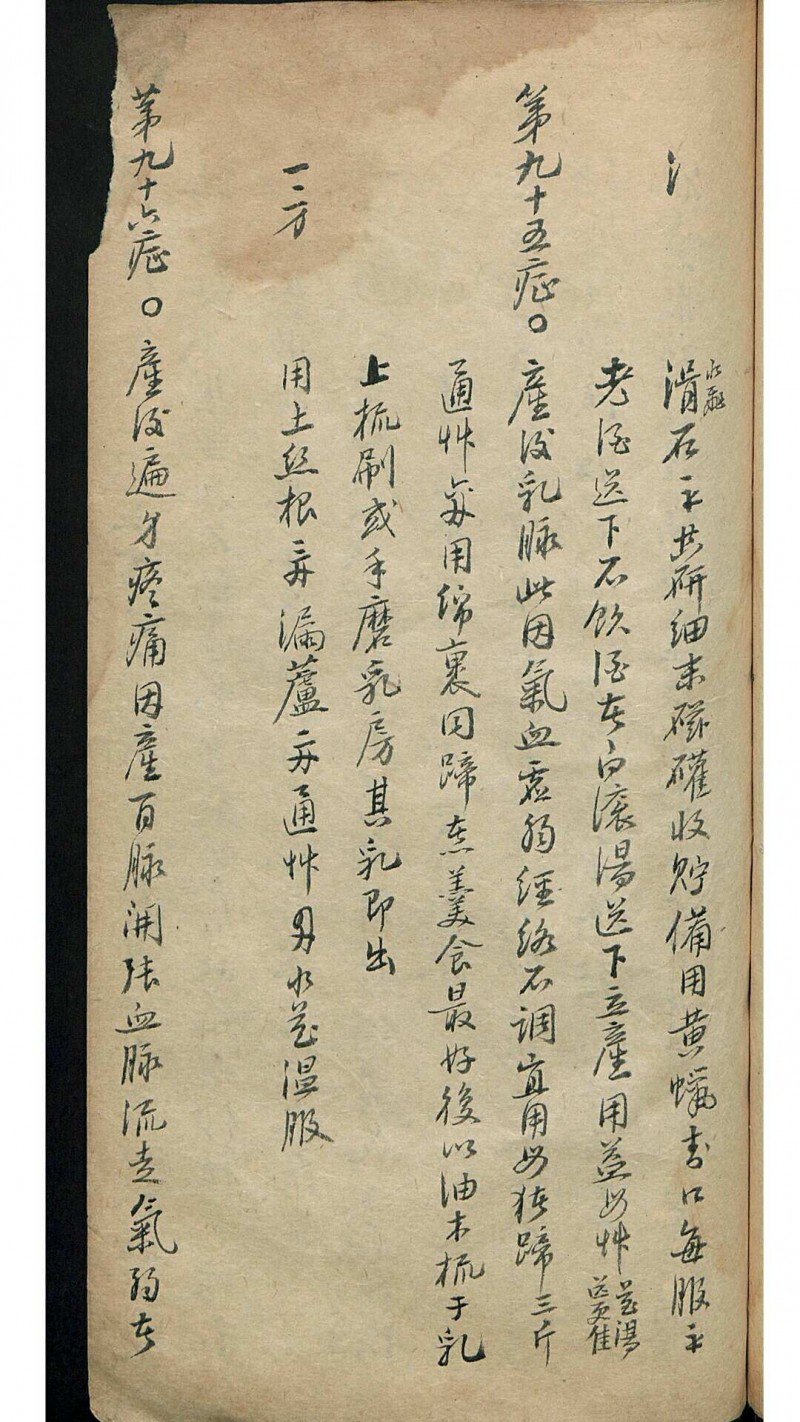 滑石 共研細末磁罐收貯備用黃蠟封口每服
水飛
老酒送下不飲酒者白滾湯送下立產用益母艸
煎湯
送更佳
第九十五症○產後乳脉此因氣血虛弱經絡不調宜用母猪蹄三斤
通艸 用綿裹同蹄煮羹食最好後以油木梳于乳
上梳刷或手磨乳房其乳即出
一方 用土瓜根 漏蘆 通艸 水煎溫服
第九十六症○產後遍身疼痛因產百脉開張血脉流走氣弱者